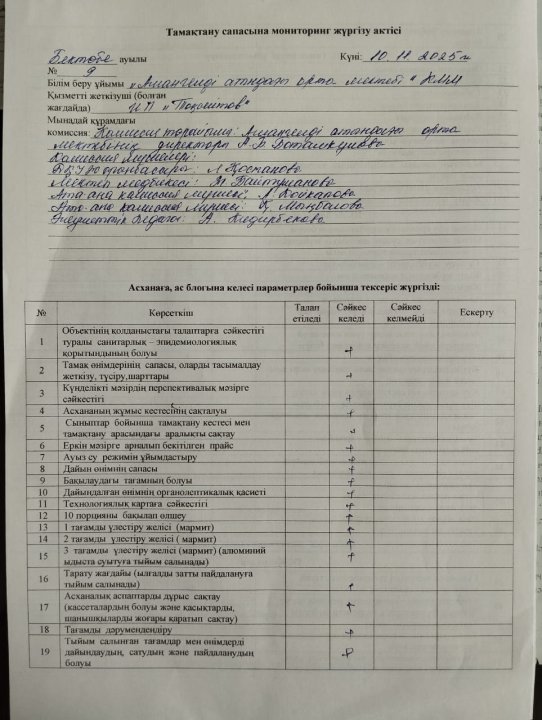 Тамақтану сапасына мониторинг жүргізу актісі
Бектөбе ауылы Күні: 10.11.2025 г
№ 9
Білім беру ұйымы "Амангелді атындағы орта мектебі" КММ
Қызметті жеткізуші (болған
жағдайда) ИП
Мынадай құрамдағы
комиссия: Комиссия төрайымы: Амангелді атындағы орта
мектебінің директоры А.
Комиссия мүшелері:
Л.
Мектеп медбикесі:
Ата-ана комиссия мүшесі:
Ата-ана комиссия мүшесі: Қ.
педагог: А.
Асханаға, ас блогына келесі параметрлер бойынша тексеріс жүргізді:
№ Көрсеткіш Талап етіледі Сәйкес келеді Сәйкес келмейді Ескерту
1 Объектінің қолданыстағы талаптарға сәйкестігі
туралы санитарлық – эпидемиологиялық
қорытындының болуы +
2 Тамақ өнімдерінің сапасы, оларды тасымалдау
жеткізу, түсіру,шарттары +
3 Күнделікті мәзірдің перспективалық мәзірге
сәйкестігі +
4 Асхананың жұмыс кестесінің сақталуы +
5 Сыныптар бойынша тамақтану кестесі мен
тамақтану арасындағы аралықты сақтау +
6 Еркін мәзірге арналып бекітілген прайс +
7 Ауыз су режимін ұйымдастыру +
8 Дайын өнімнің сапасы +
9 Бақылаудағы тағамның болуы +
10 Дайындалған өнімнің органолептикалық қасиеті +
11 Технологиялық картаға сәйкестігі +
12 10 порцияны бақылап өлшеу +
13 1 тағамды үлестіру желісі (мармит) +
14 2 тағамды үлестіру желісі ( мармит) +
15 3 тағамды үлестіру желісі (мармит) (алюминий
ыдыста суытуға тыйым салынады) +
16 Тарату жағдайы (ылғалды затты пайдалануға
тыйым салынады) +
17 Асханалық аспаптарды дұрыс сақтау
(кассеталардың болуы және қасықтарды,
шанышқыларды жоғары қаратып сақтау) +
18 Тағамды дәрумендендіру +
19 Тыйым салынған тағамдар мен өнімдерді
дайындаудың, сатудың және пайдаланудың
болуы +